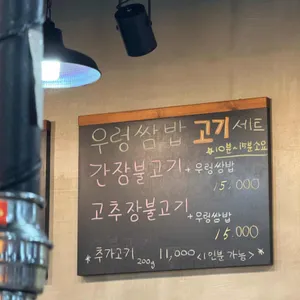 우렁쌈밥 고기세트
약10분 시간소요
간장불고기 + 우렁쌈밥
15.000
고추장불고기 + 우렁쌈밥
15.000
* 추가고기 200g 11,000 <1인분 가능> *